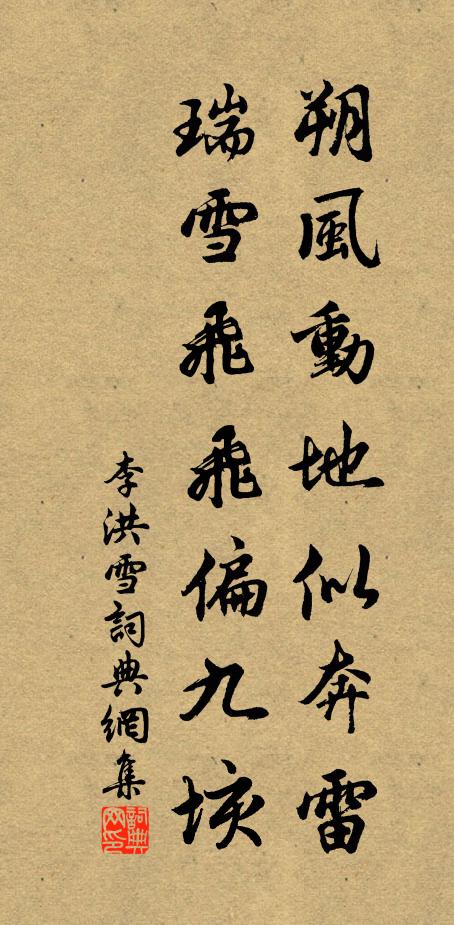 朔風動地似奔雷
瑞雪飛飛偏九垓
李洪雪詞典網集
詞典網印